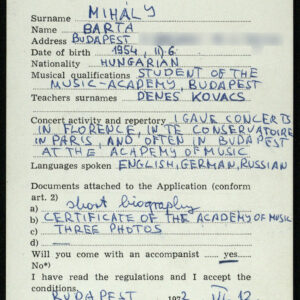 Surname MIHÁLY
Name BARTA
Address BUDAPEST
Date of birth 1954, II. 6.
Nationality HUNGARIAN
Musical qualifications STUDENT OF THE
MUSIC-ACADEMY, BUDAPEST
Teachers surnames DENES KOVACS
Concert activity and repertory I GAVE CONCERTS
IN FLORENCE, IN TE CONSERVATOIRE
IN PARIS, AND OFTEN IN BUDAPEST
AT THE ACADEMY OF MUSIC
Languages spoken ENGLISH, GERMAN, RUSSIAN
Documents attached to the Application (conform
art. 2)
a) short biography
b) CERTIFICATE OF THE ACADEMY OF MUSIC
c) THREE PHOTOS
d) —
Will you come with an accompanist — yes —
No*)
I have read the regulations and I accept the
conditions.
BUDAPEST 1972 VI 12